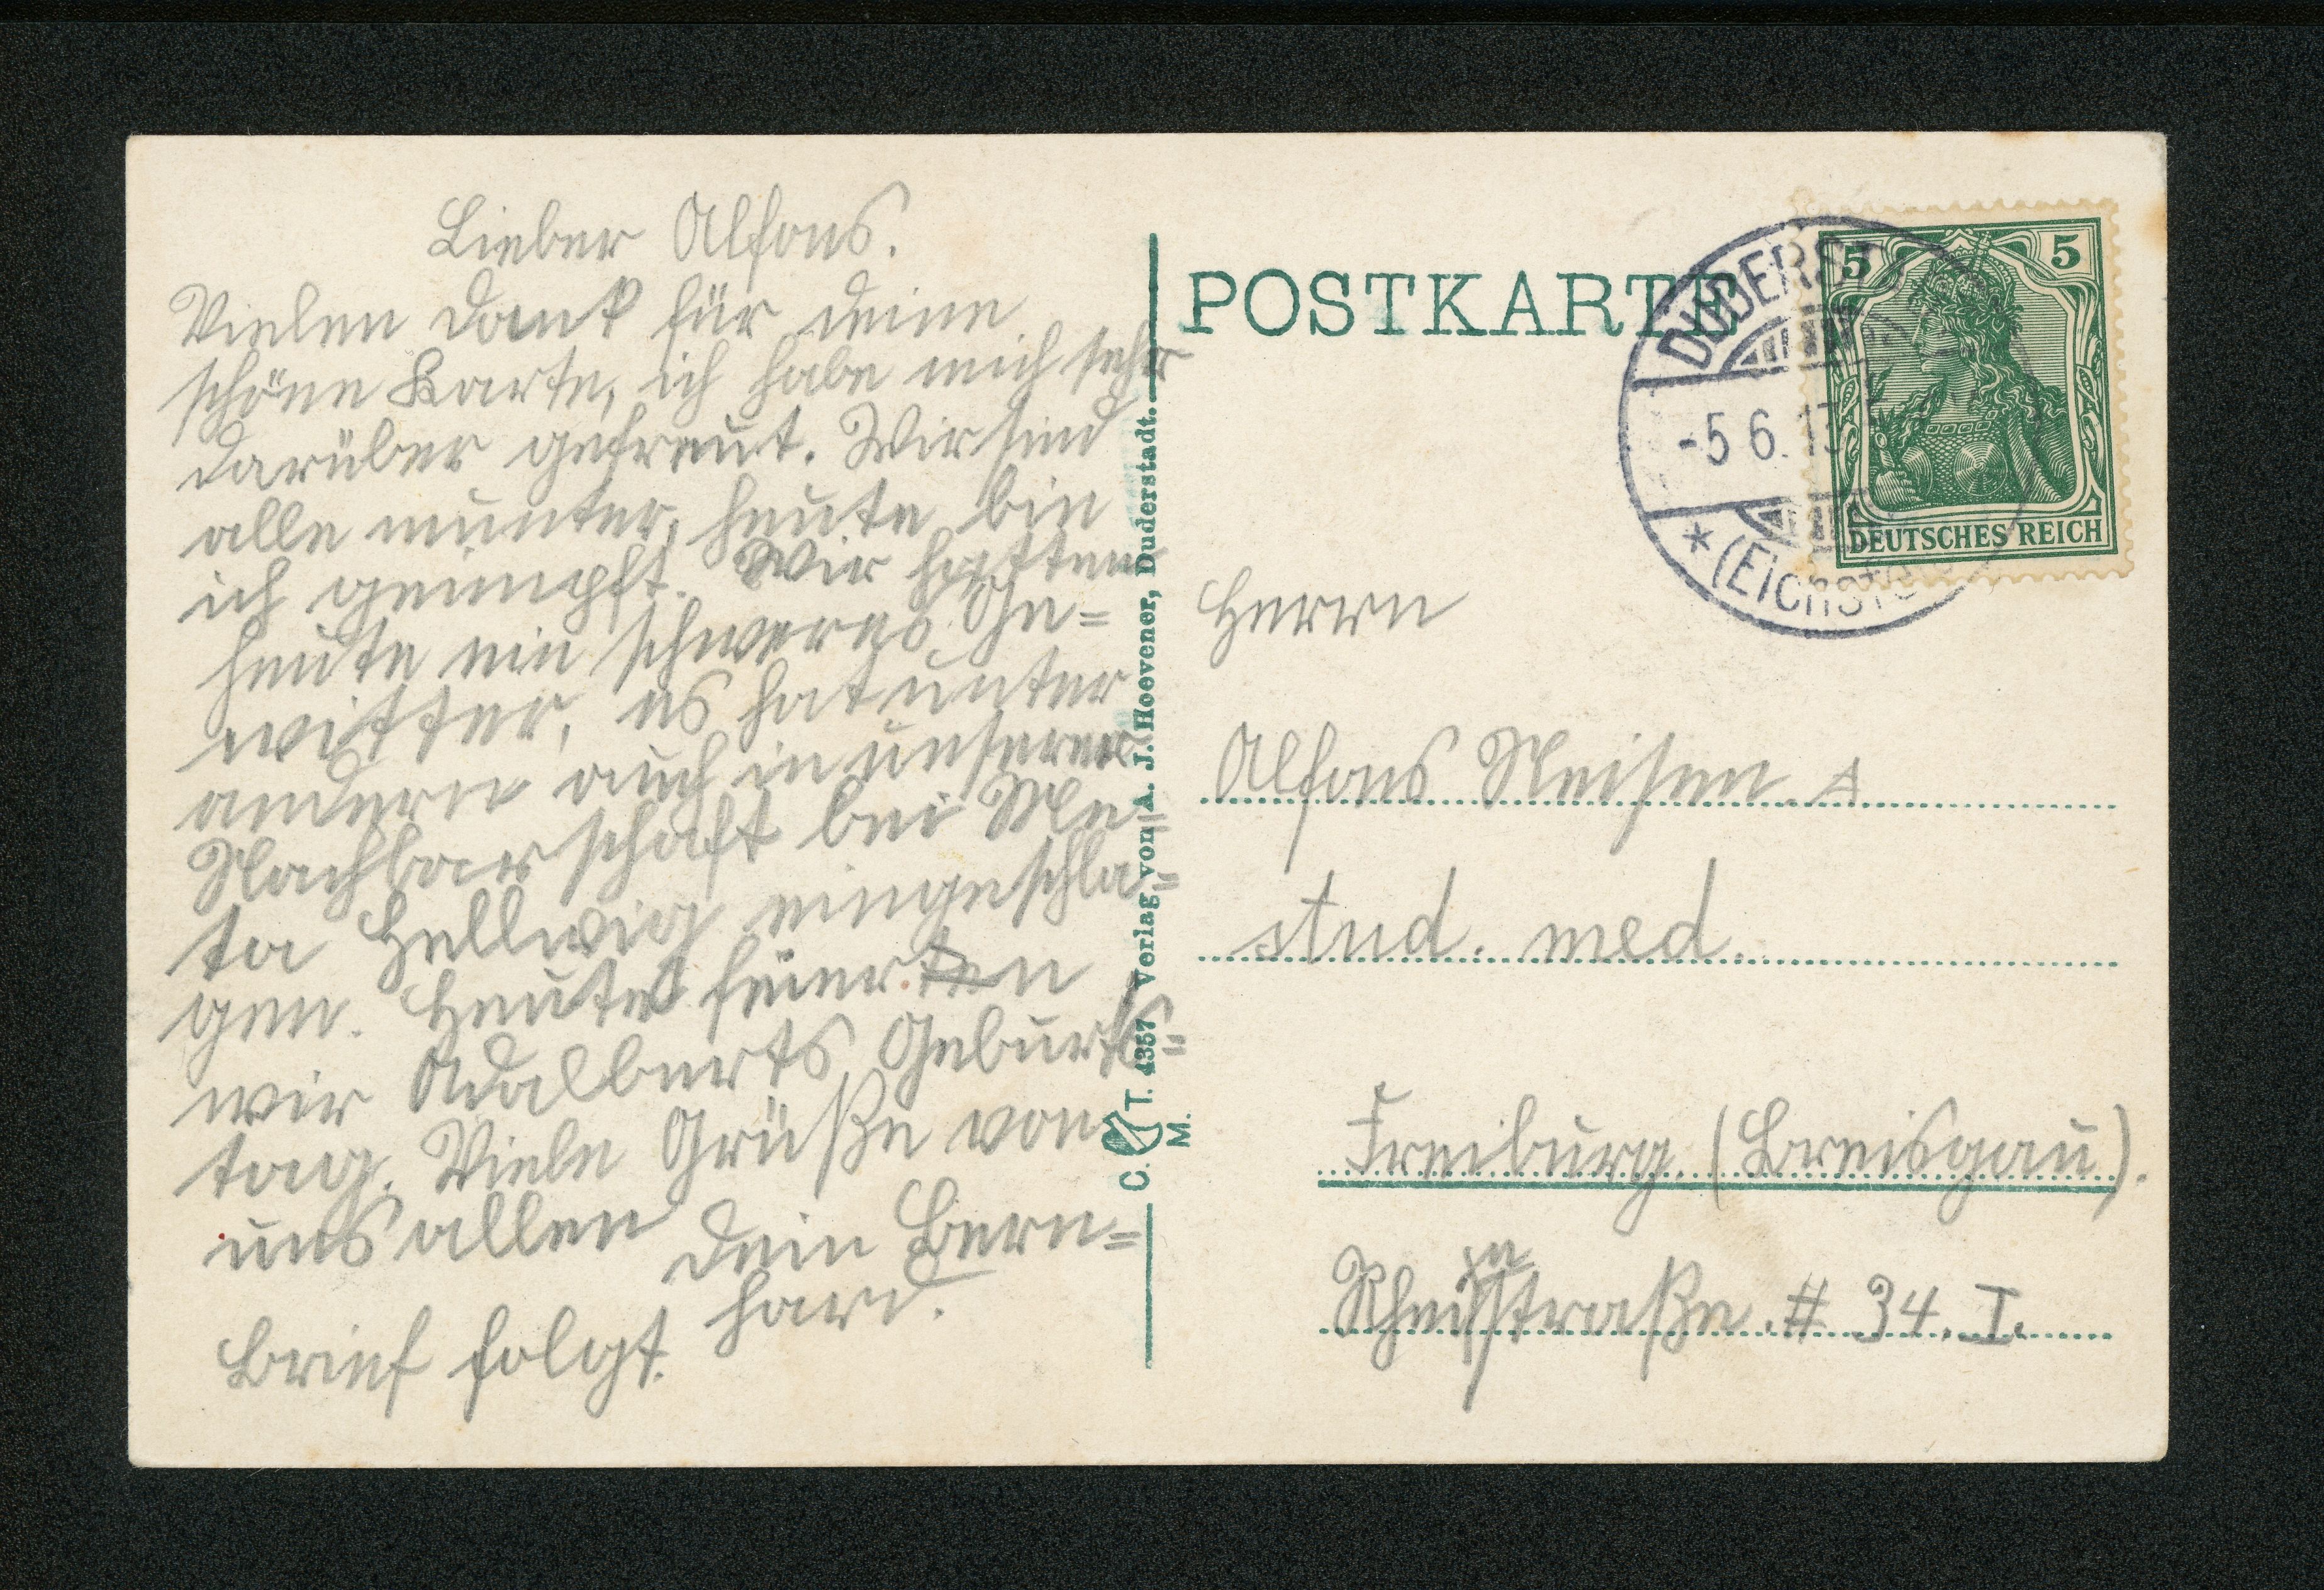 Lieber Alfons.
Vielen Dank für deine
schöne Karte, ich habe mich sehr
darüber gefreut. Wir sind
alle munter, heute bin
ich geimpft. Wir hatten
heute ein schweres Ge=
witter, es hat unter
andern auch in unserer
Nachbarschaft bei Me=
ta Hellwig eingeschla=
gen. Heute feierten
wir Adalberts Geburts=
tag. Viele Grüße von
uns allen Dein Bern=
hard.
Brief folgt.
C. T. 4357 Verlag von A. J. Hoevener, Duderstadt.
M.
POSTKARTE
DUDERST
-5 6. 13
* (Eichsf
5 5
DEUTSCHES REICH
Herrn
Alfons Neisen.
stud. med.
Freiburg. (Breisgau).
Rheinstraße. # 34. I.